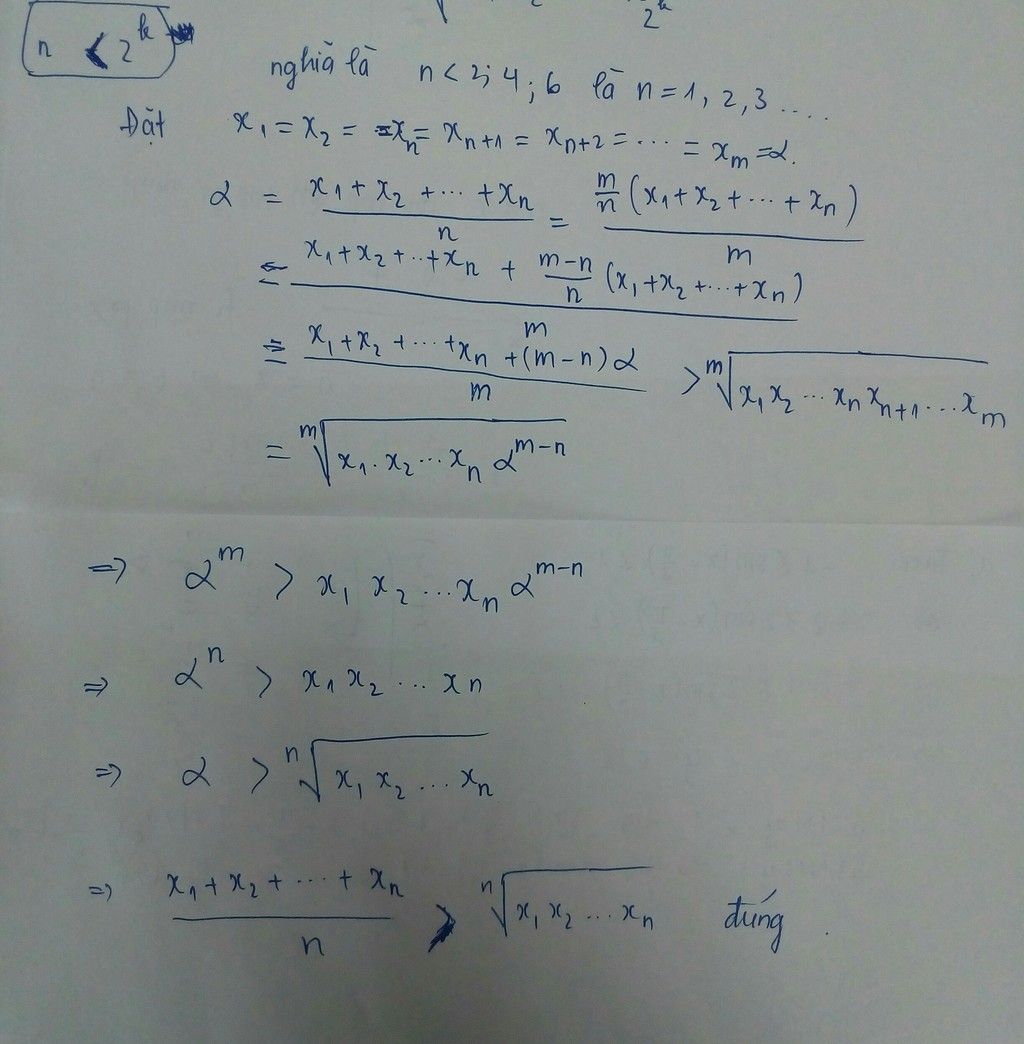 2ᵏ
n < 2ᵏ
nghĩa là n < 2; 4; 6 là n = 1, 2, 3 ....
Đặt x₁ = x₂ = = xₙ = xₙ₊₁ = xₙ₊₂ = ... = xₘ = α.
α = (x₁ + x₂ + ... + xₙ)/n = (m/n (x₁ + x₂ + ... + xₙ))/m
= (x₁ + x₂ + ... + xₙ + (m-n)/n (x₁ + x₂ + ... + xₙ))/m
= (x₁ + x₂ + ... + xₙ + (m-n)α)/m > ᵐ√(x₁ x₂ ... xₙ xₙ₊₁ ... xₘ)
= ᵐ√(x₁ . x₂ ... xₙ αᵐ⁻ⁿ)
⇒ αᵐ > x₁ x₂ ... xₙ αᵐ⁻ⁿ
⇒ αⁿ > x₁ x₂ ... xn
⇒ α > ⁿ√(x₁ x₂ ... xₙ)
⇒ (x₁ + x₂ + ... + xₙ)/n > ⁿ√(x₁ x₂ ... xₙ) đúng .